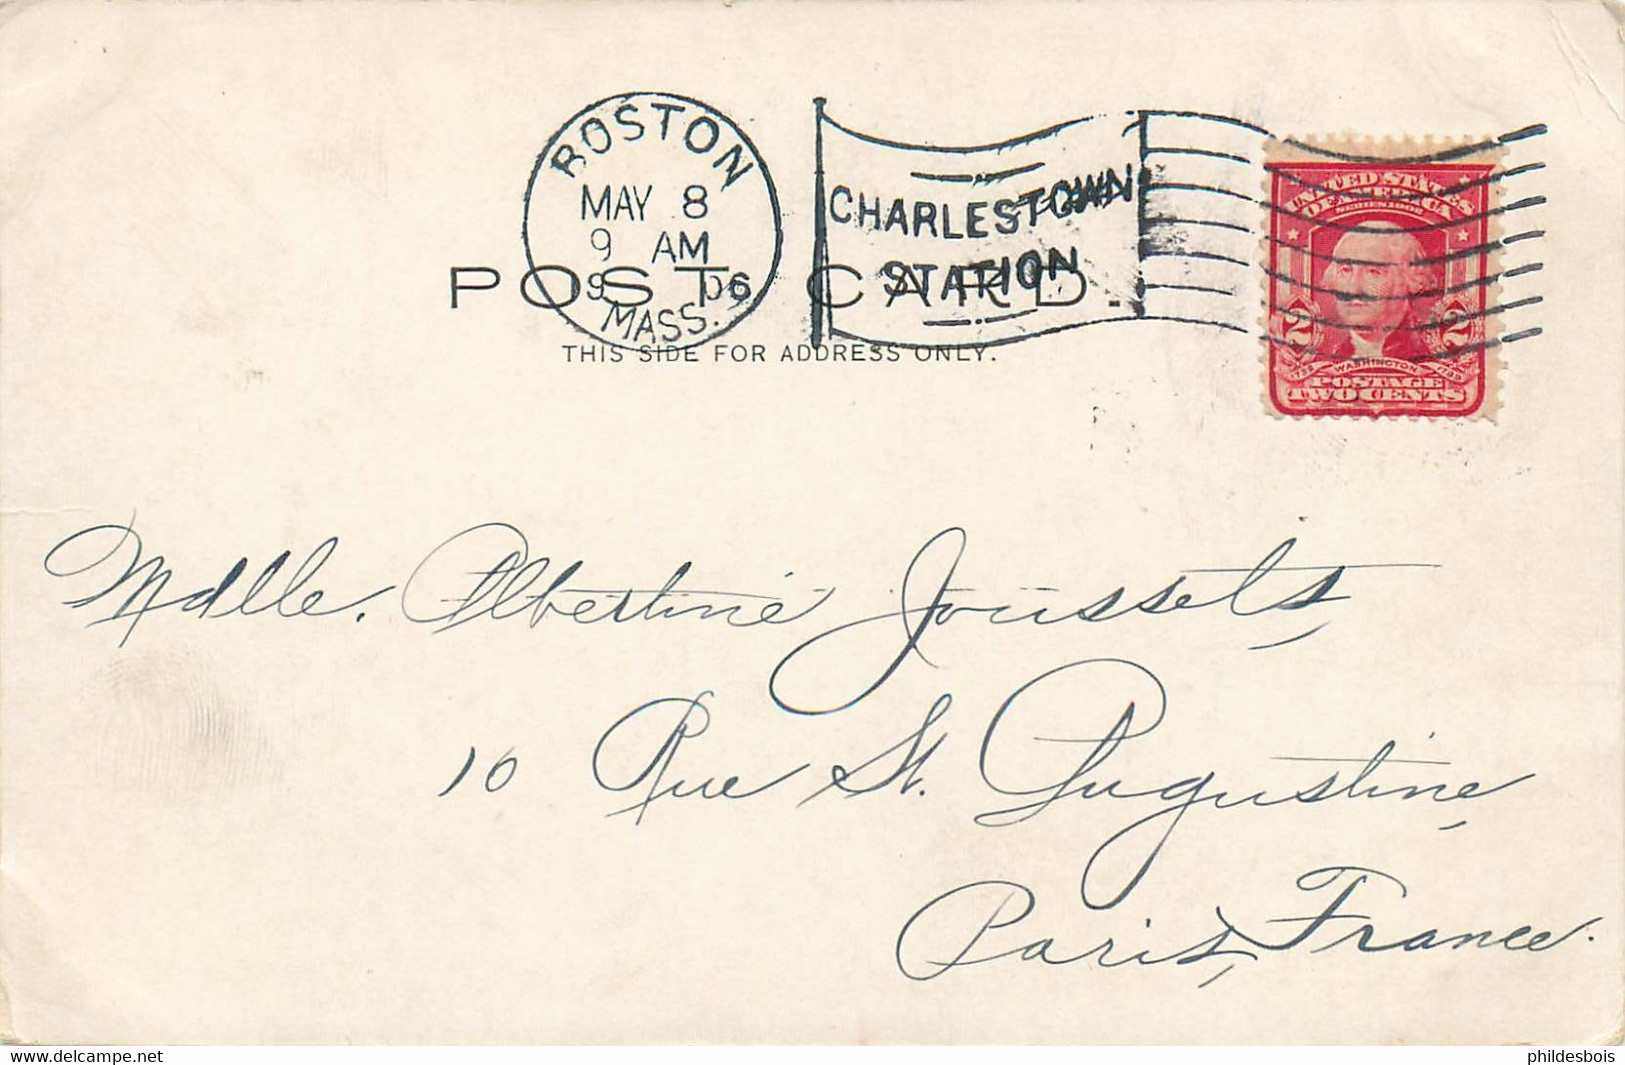 BOSTON
MAY 8
9 AM
9 06
MASS.
CHARLESTOWN
STATION
POST CARD.
THIS SIDE FOR ADDRESS ONLY.
UNITED STATES
OF AMERICA
SERIES 1902
2 2
1732 WASHINGTON 1799
POSTAGE
TWO CENTS
Mdlle. Albertine Joussets,
10 Rue St. Augustine,
Paris, France.
www.delcampe.net
phildesbois